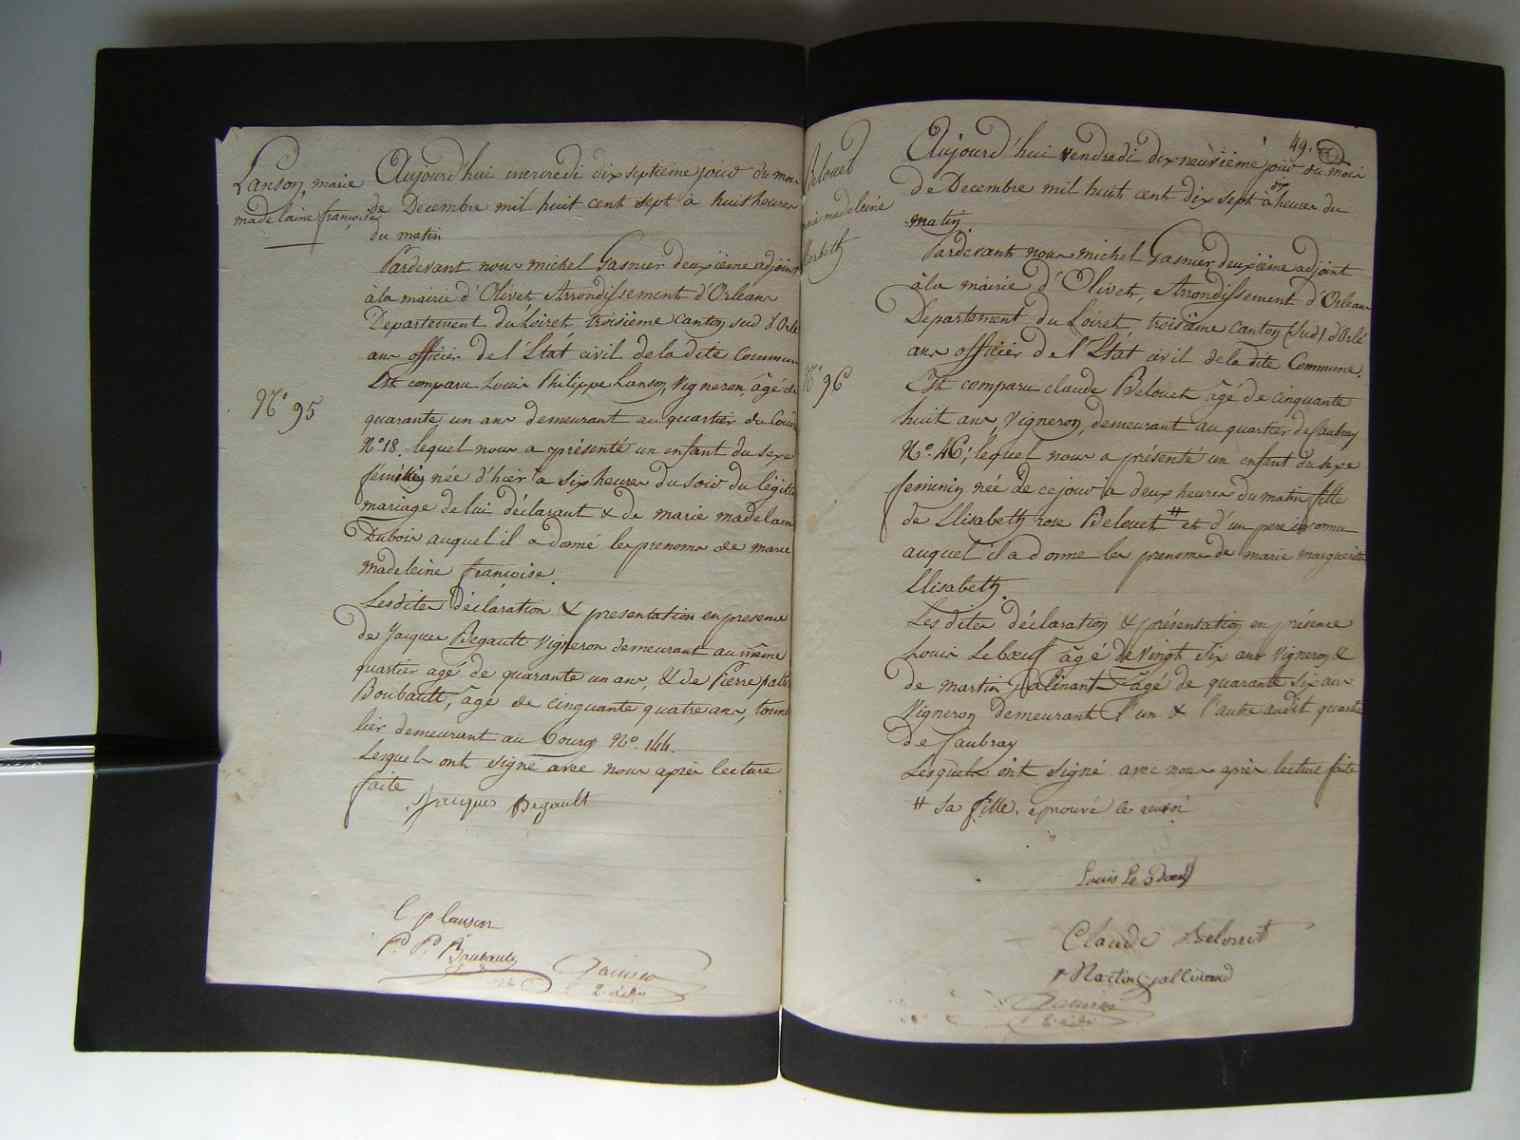 Lanson, marie
madelaine françoise
N.º 95
Aujourd'hui mercredi dix septieme jour du mois
de Decembre mil huit cent sept a huit heures
du matin
Pardevant nous michel Gasnier deuxieme adjoint
à la mairie d'Olivet, Arrondissement d'Orleans
Departement du Loiret, troisième canton sud d'Orle
ans officier de l'Etat civil de la dite Commune
Est comparu Louis Philippe Lanson, Vigneron, âgé de
quarante un ans demeurant au quartier du
N.º 18. lequel nous a présenté un enfant du sexe
féminin née d'hier à six heures du soir du légitime
mariage de lui déclarant & de marie madelaine
Dubois auquel il a donné les prenoms de marie
madeleine françoise.
Lesdites déclaration & presentation en presence
de Jacques Begault Vigneron demeurant au même
quartier agé de quarante un ans, & de Pierre
Boubault, âgé de cinquante quatre ans, tonne
lier demeurant au bourg N.º 144.
Lesquels ont signé avec nous après lecture
faite
Jacques Begault
L P lanson
P. P. Boubault
Gasnier
2. adj.
Belouet
marie madeleine
Elisabeth
N.º 96
49.
Aujourd'hui vendredi dix neuvième jour du mois
de Decembre mil huit cent dix sept à heures du
matin.
Pardevant nous michel Gasnier deuxième adjoint
à la mairie d'Olivet, Arrondissement d'Orleans
Département du Loiret, troisième canton (sud) d'Orlé
ans officier de l'Etat civil de la dite Commune.
Est comparu claude Belouet âgé de cinquante
huit ans, Vigneron, demeurant au quartier de faubray
N.º 46; lequel nous a présenté un enfant du sexe
feminin née de ce jour a deux heures du matin fille
de Elisabeth rose Belouet # et d'un pere inconnu
auquel il a donné les prenoms de marie margueritte
Elisabeth.
Les dites déclaration & présentation en présence
Louis Leboeuf âgé de vingt six ans vigneron &
de martin Galinant âgé de quarante six ans
Vigneron demeurant l'un & l'autre audit quartier
de faubray
Lesquels ont signé avec nous après lecture faite
# sa fille. aprouvé le renvoi
Louis Le Boeuf
Claude Belouet
Martin Gallinand
Gasnier
2. adj.